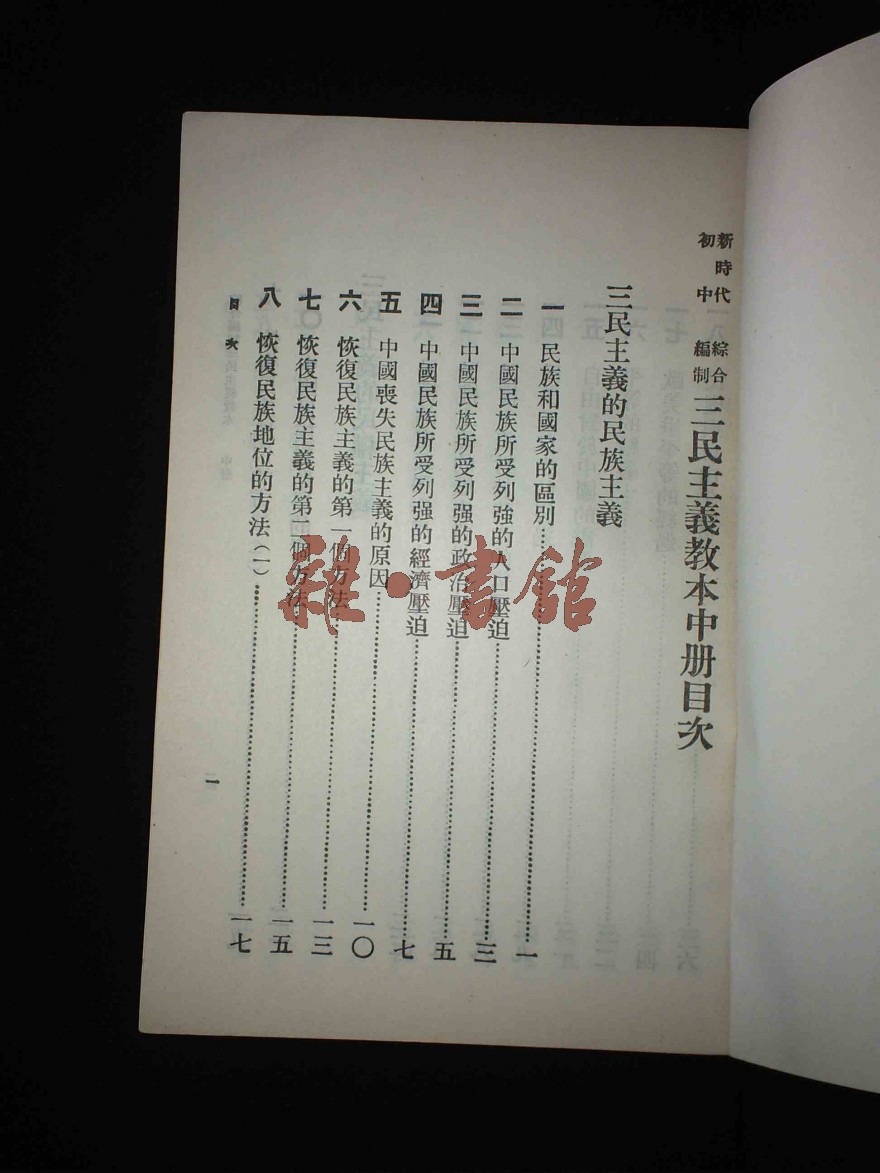 新時代 初中
綜合 編制 三民主義教本中册目次
三民主義的民族主義
一 民族和國家的區別……一
二 中國民族所受列強的人口壓迫……三
三 中國民族所受列强的政治壓迫……五
四 中國民族所受列强的經濟壓迫……七
五 中國喪失民族主義的原因……一〇
六 恢復民族主義的第一個方法……一三
七 恢復民族主義的第二個方法……一五
八 恢復民族地位的方法(一)……一七
目次
一
雜·書館